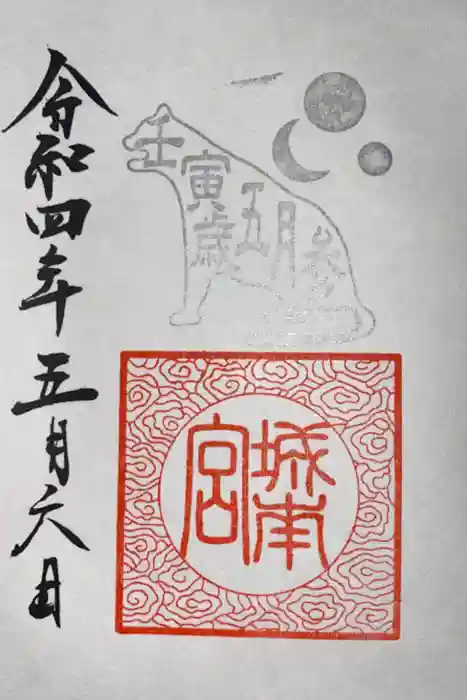 壬寅歳五月参
城南宮
令和四年五月六日